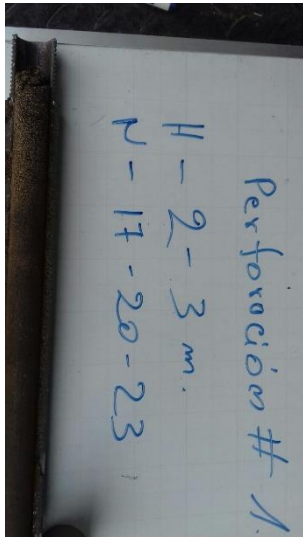 Perforación # 1.
H - 2 - 3 m.
N - 17 - 20 - 23